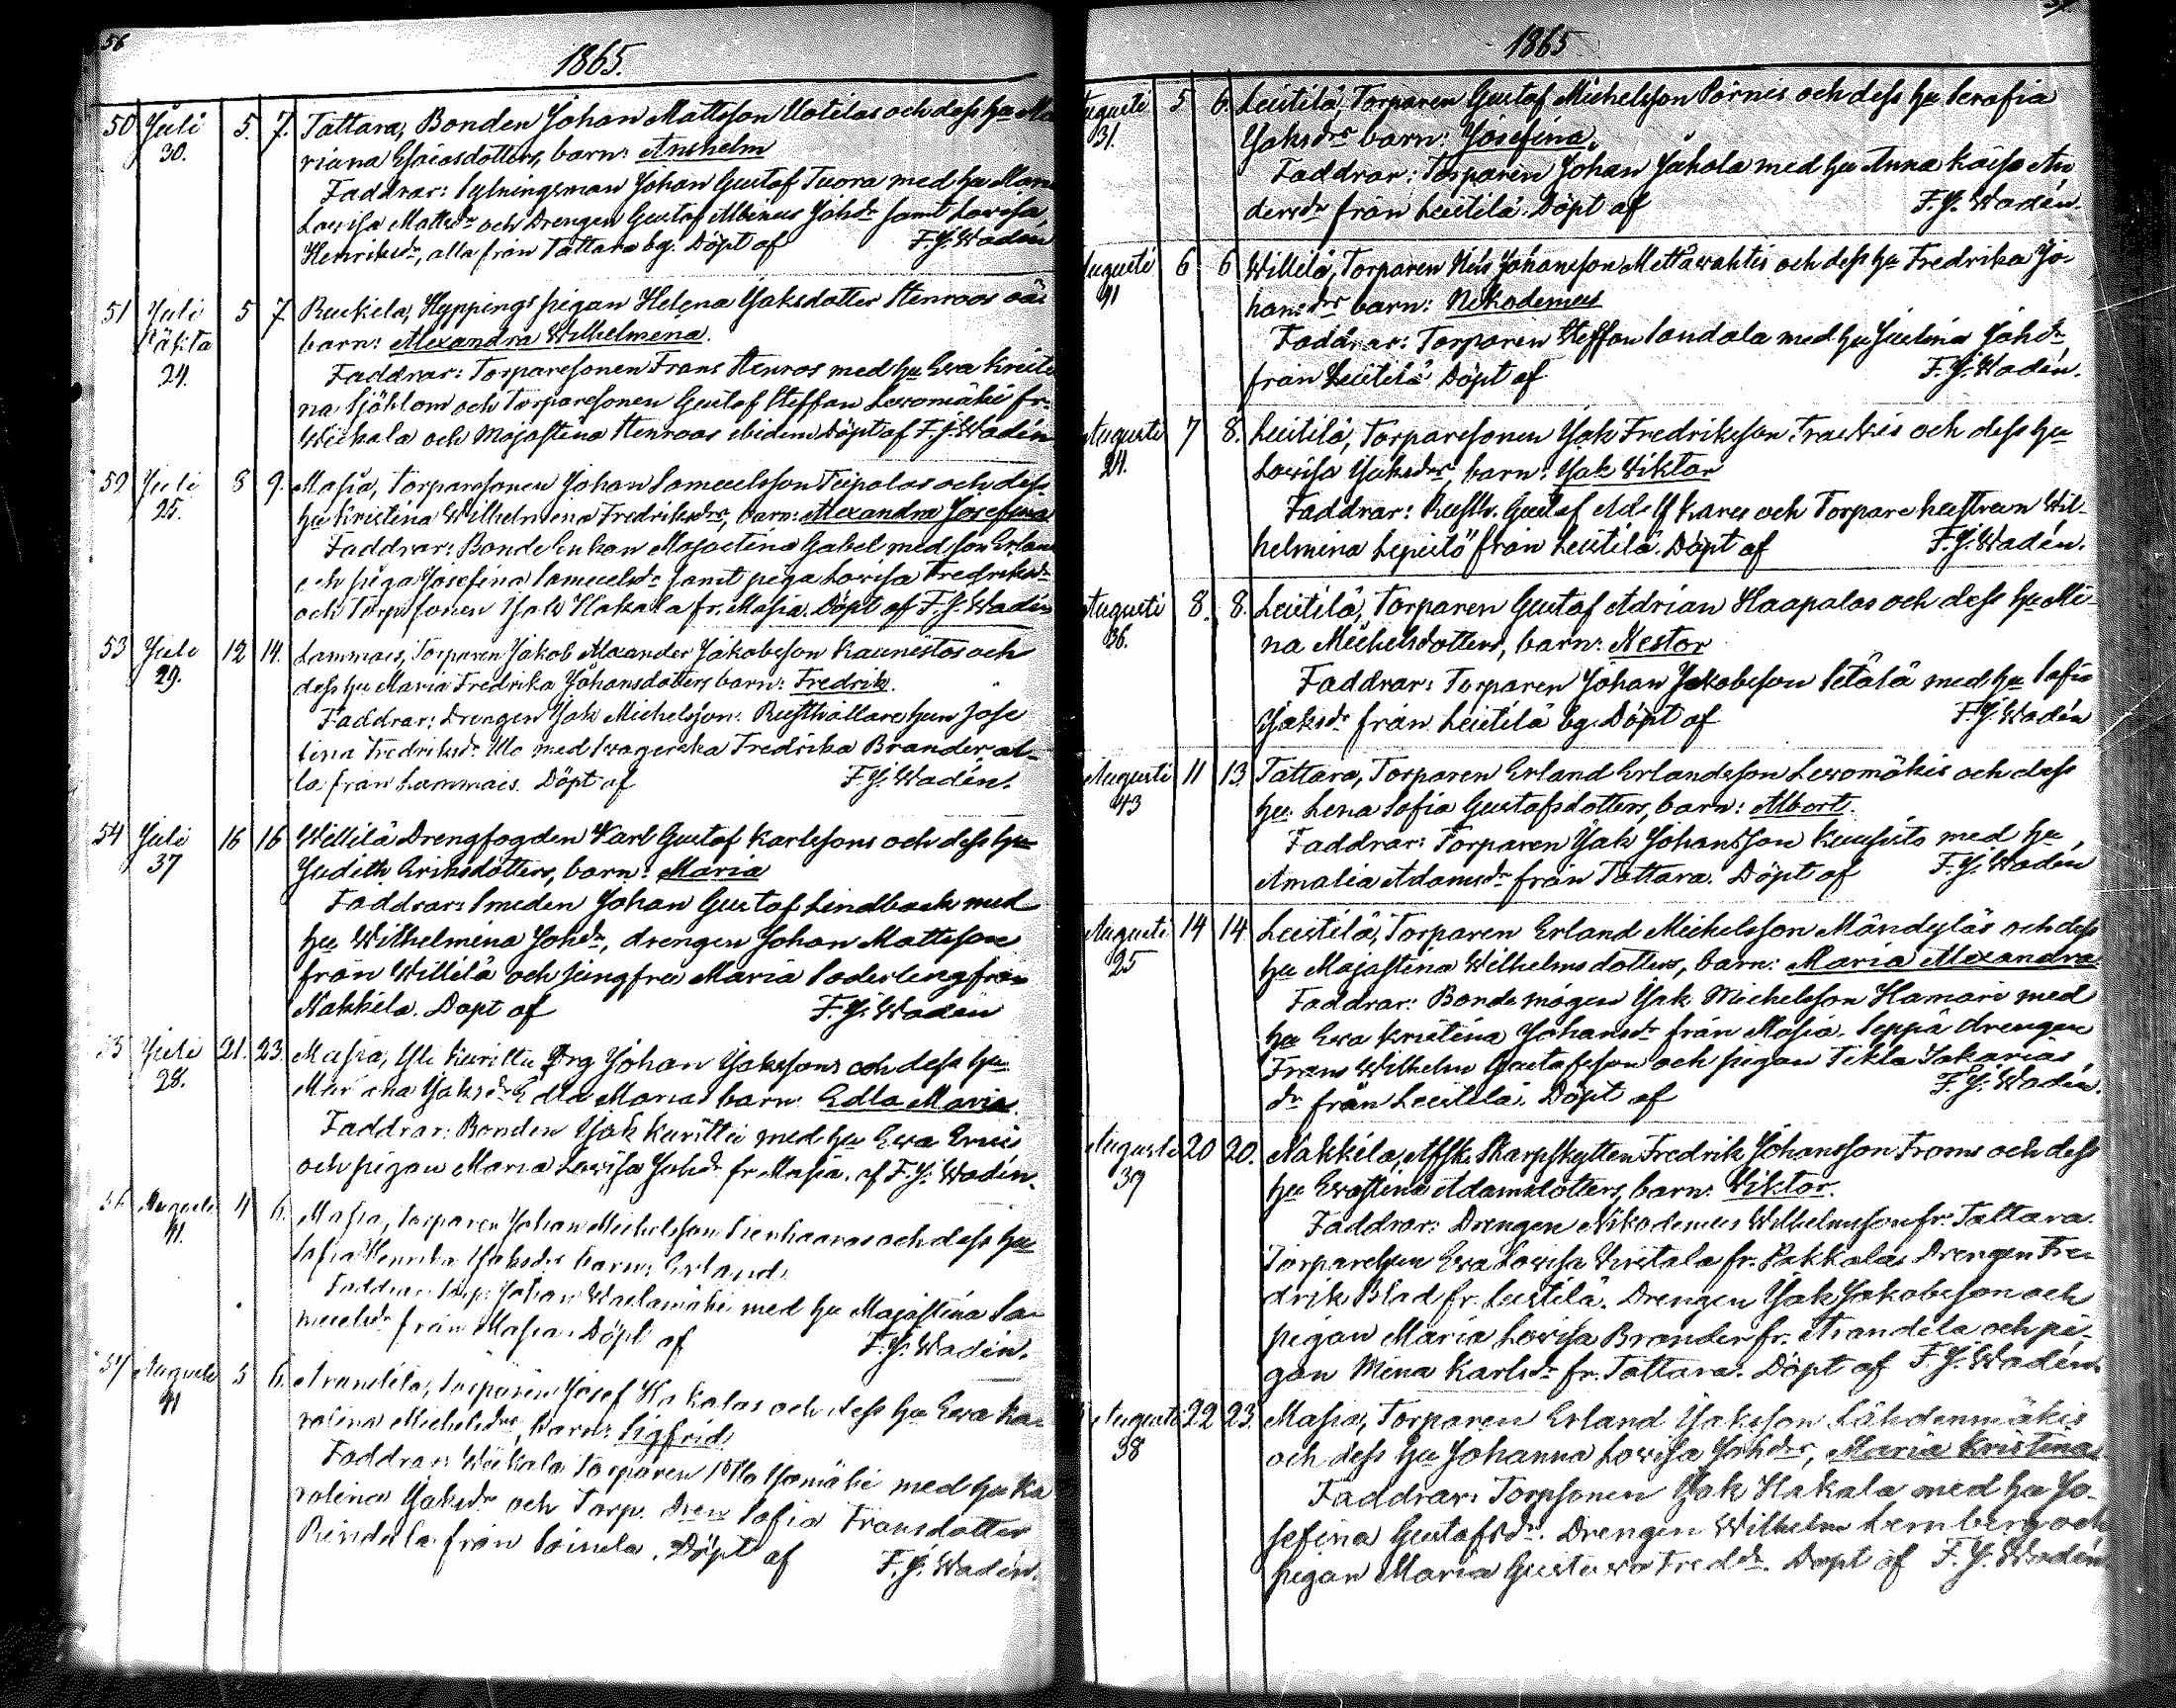 56
1865.
50 Juli 5. 7. Tattara, Bonden Johan Mattsson Uotilas och dess hu Ma
30. riana Esaiasdotters, barn: Anshelm
Faddrar: Johan Gustaf Tuora med hu Maria
Lovisa Mattsdr och Drengen Gustaf Albinus Johdr samt Lovisa
Henriksdr, alla från Tattara bg. Döpt af F.J. Wadén
51 Juli 5 7 Ruskila, Hyppings pigan Helena Jaksdotter Stenroos oäa
oäkta barn: Alexandra Wilhelmina.
24. Faddrar: Torparesonen Frans Stenros med hu Eva Kristi
na Sjöblom och Torparesonen Gustaf Steffan Levomäki fr.
Wiikala och Majastina Stenroos ibidem Döpt af F.J. Wadén
52 Juli 8 9. Masia, Torparesonen Johan Samuelsson Teipalas och dess
25. hu Kristina Wilhelmina Fredriksdrs, barn: Alexandra Josefina
Faddrar: Bonde Enkan Majastina Gabel med son Erland
och piga Josefina Samuelsdr samt piga Lovisa Fredriksdr
och Torpsonen Isak Hakala fr. Masia. Döpt af F.J. Wadén
53 Juli 12 14. Lammais, Torparen Jakob Alexander Jakobsson Kaunistos och
29. dess hu Maria Fredrika Johansdotters barn: Fredrik.
Faddrar: Drengen Isak Michelsson. Rusthållarehun Jose
fina Fredriksdr Ulo med Svägerska Fredrika Brander, al-
la från Lammais. Döpt af F.J. Wadén.
54 Juli 16 16 Willilä Drengfogden Karl Gustaf Karlssons och dess hu
37 Judith Eriksdotters, barn: Maria
Faddrar: Smeden Johan Gustaf Lindback med
hu Wilhelmina Johdr, drengen Johan Mattsson
från Willilä och jungfru Maria Soderling från
Nakkila. Döpt af F.J. Wadén
55 Juli 21. 23. Masia, Yli Kurittu Drg Johan Jakssons och dess hu
28. Jaksdr Edla Marias barn: Edla Maria.
Faddrar: Bonden Isak Kurittu med hu Eva
och pigan Maria Lovisa Johdr fr. Masia. af F.J. Wadén.
56 Augusti 4 6. Masia, Torparen Johan Michelsson Pienhaaras och dess hu
41. Sofia Henrika Jaksdrs barn: Erland.
Faddrar: Torp. Johan Waelamäki med hu Majastina Sa-
muelsdr från Masia. Döpt af F.J. Wadén.
57 Augusti 5 6. Arantila, Torparen Josef Hakalas och dess hu Eva Ka-
41 rolina Michelsdrs, barn: Sigfrid.
Faddrar: Wiikala Torparen Otto Isomäki med hu Ka
rolina Jaksdr och Torp. Sofia Fransdotter
Rindala från Soinila. Döpt af F.J. Wadén.
57.
1865
Augusti 5 6. Leistilä, Torparen Gustaf Michelsson Pörnis och dess hu Serafia
31. Jaksdrs barn: Josefina.
Faddrar: Torparen Johan Jakola med hu Anna Kaisa An
dersdr från Leistilä. Döpt af F.J. Wadén.
Augusti 6 6 Willilä, Torparen Johansson Mettäwahtis och dess hu Fredrika Jo-
41 hansdrs barn: Nikodemus
Faddrar: Torparen Steffan Sandala med hu Justina Johdr
från Leistilä Döpt af F.J. Wadén.
Augusti 7 8. Leistilä, Torparesonen Isak Fredriksson och dess hu
24. Lovisa Jaksdrs, barn: Isak Wiktor
Faddrar: Rusth. Gustaf Adolf Karu och Torparehustrun Wil-
helmina Lepistö från Leistilä. Döpt af F.J. Wadén.
Augusti 8. 8. Leistilä, Torparen Gustaf Adrian Haapalas och dess hu Mi-
36. na Michelsdotters, barn: Nestor
Faddrar: Torparen Johan Jakobsson Sitälä med hu Sofia
Jaksdr från Leistilä bg. Döpt af F.J. Wadén
Augusti 11 13. Tattara, Torparen Erland Erlandsson Levomäkis och dess
43 hu Lena Sofia Gustafsdotters, barn: Albert.
Faddrar: Torparen Isak Johansson Kuusisto med hu
Amalia Adamsdr från Tattara. Döpt af F.J. Wadén
Augusti 14 14 Leistilä, Torparen Erland Michelsson Mändyläs och dess
25 hu Majastina Wilhelmsdotters, barn: Maria Alexandra
Faddrar: Bondemågen Isak Michelsson Hamari med
hu Eva Kristina Johansdr från Masia. Seppä drengen
Frans Wilhelm Gustafsson och pigan Tekla Sakarias
dr från Leistilä. Döpt af F.J. Wadén.
Augusti 20 20. Nakkila, Afsk. Skarpskytten Fredrik Johansson Froms och dess
39 hu Evastina Adamsdotters, barn: Wiktor.
Faddrar: Drengen Nikodemus Wilhelmsson fr. Tattara.
Torparehun Eva Lovisa Wirtala fr. Pakkala. Drengen Fre-
drik Blad fr. Leistilä. Drengen Isak Jakobsson och
pigan Maria Lovisa Brander fr. Arandila och pi-
gan Mina Karlsdr fr. Tattara. Döpt af F.J. Wadén.
Augusti 22 23. Masia, Torparen Erland Isaksson Lähdenmäkis
38 och dess hu Johanna Lovisa Johdrs, Maria Kristina
Faddrar: Torpsonen Isak Hakala med hu Jo-
sefina Gustafsdr. Drengen Wilhelm Lemberg och
pigan Maria Gustava Freddr. Döpt af F.J. Wadén